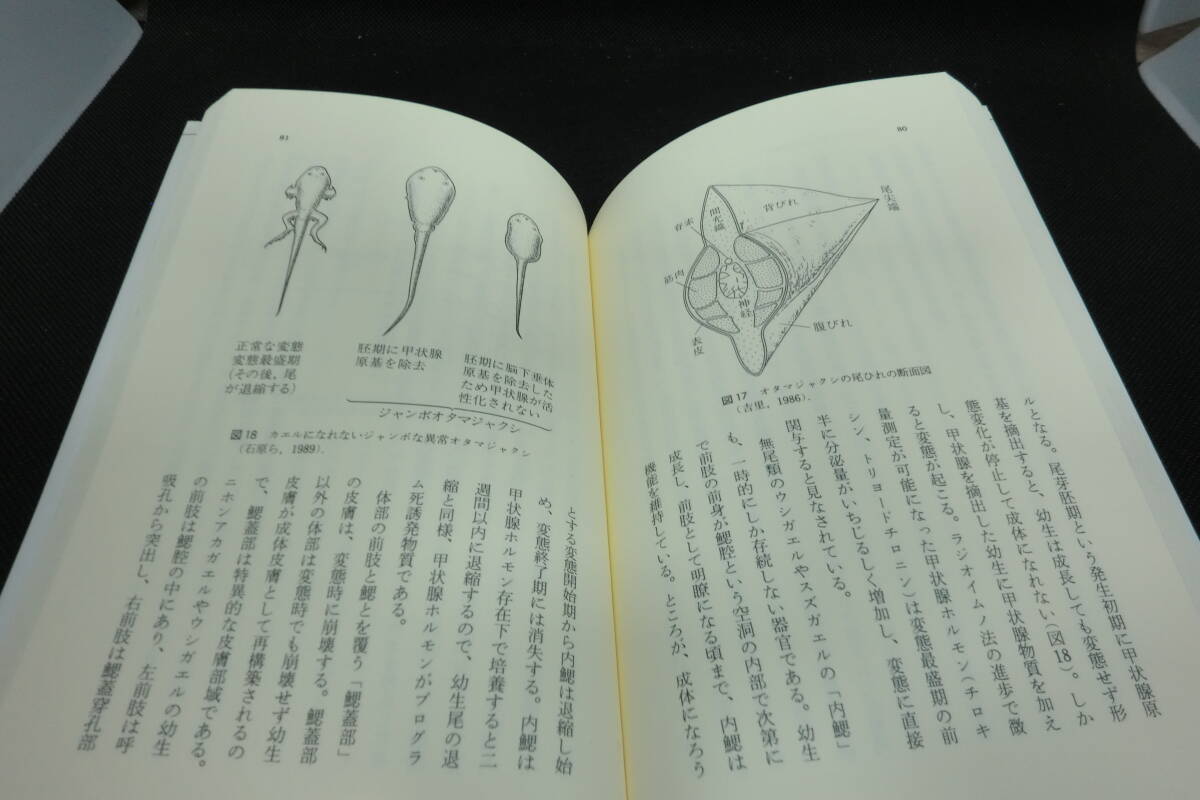 80
尾尖端
背びれ
間充織
脊索
筋肉
神経
表皮
腹びれ
図17 オタマジャクシの尾ひれの断面図
(吉里, 1986).
ルとなる。尾芽胚期という発生初期に甲状腺原
基を摘出すると、幼生は成長しても変態せず形
態変化が停止して成体になれない(図18)。しか
し、甲状腺を摘出した幼生に甲状腺物質を加え
ると変態が起こる。ラジオイムノ法の進歩で微
量測定が可能になった甲状腺ホルモン(チロキ
シン、トリヨードチロニン)は変態最盛期の前
半に分泌量がいちじるしく増加し、変態に直接
関与すると見なされている。
無尾類のウシガエルやスズガエルの「内鰓」
も、一時的にしか存続しない器官である。幼生
で前肢の前身が鰓腔という空洞の内部で次第に
成長し、前肢として明瞭になる頃まで、内鰓は
機能を維持している。ところが、成体になろう
81
正常な変態
変態最盛期
(その後, 尾
が退縮する)
胚期に甲状腺
原基を除去
胚期に脳下垂体
原基を除去した
ため甲状腺が活
性化されない
ジャンボオタマジャクシ
図18 カエルになれないジャンボな異常オタマジャクシ
(石原ら, 1989).
とする変態開始期から内鰓は退縮し始
め、変態終了期には消失する。内鰓は
甲状腺ホルモン存在下で培養すると二
週間以内に退縮するので、幼生尾の退
縮と同様、甲状腺ホルモンがプログラ
ム死誘発物質である。
体部の前肢と鰓とを覆う「鰓蓋部」
の皮膚は、変態時に崩壊する。鰓蓋部
以外の体部は変態時でも崩壊せず幼生
皮膚が成体皮膚として再構築されるの
で、鰓蓋部は特異的な皮膚部域である。
ニホンアカガエルやウシガエルの幼生
の前肢は鰓腔の中にあり、左前肢は呼
吸孔から突出し、右前肢は鰓蓋穿孔部